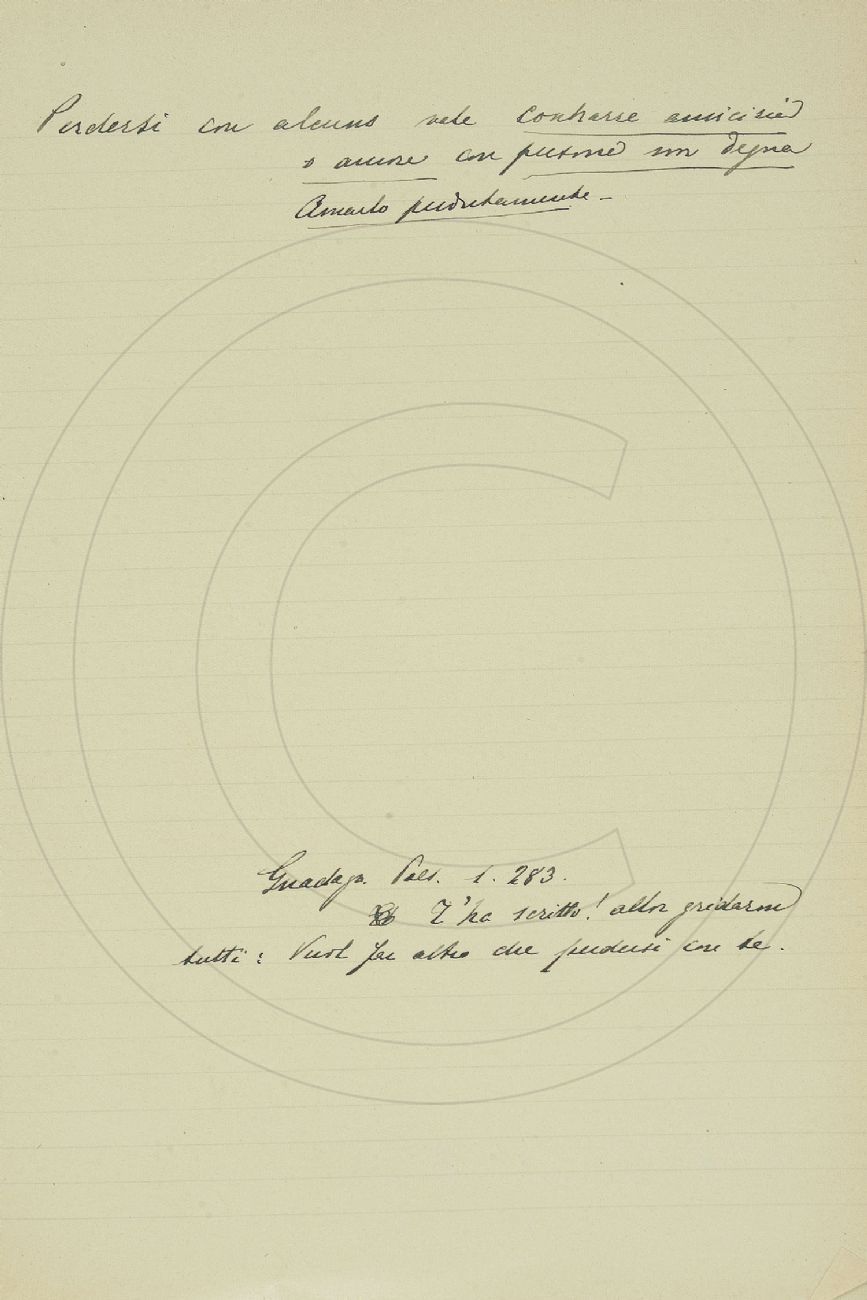 Perdersi con alcuno vale contrarre amicizia
o amore con persona non degna
Amarlo perdutamente. -
Guadagn. Poes. 1. 283.
T'ha scritto! allor gridaron
tutti: Vuol far altro che perdersi con te.